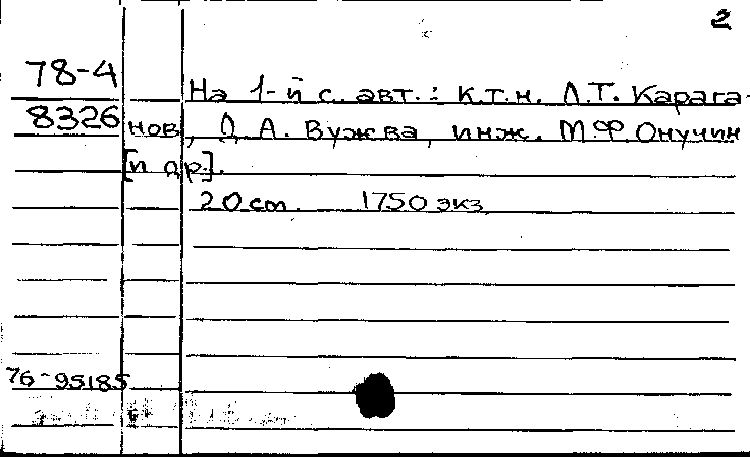 2
78-4
На 1-й с. авт.: к.т.н. Л.Т. Карага-
8326
нов, Д.А. Вужва, инж. М.Ф. Онучин
[и др.].
20 cm. 1750 экз.
76-95185